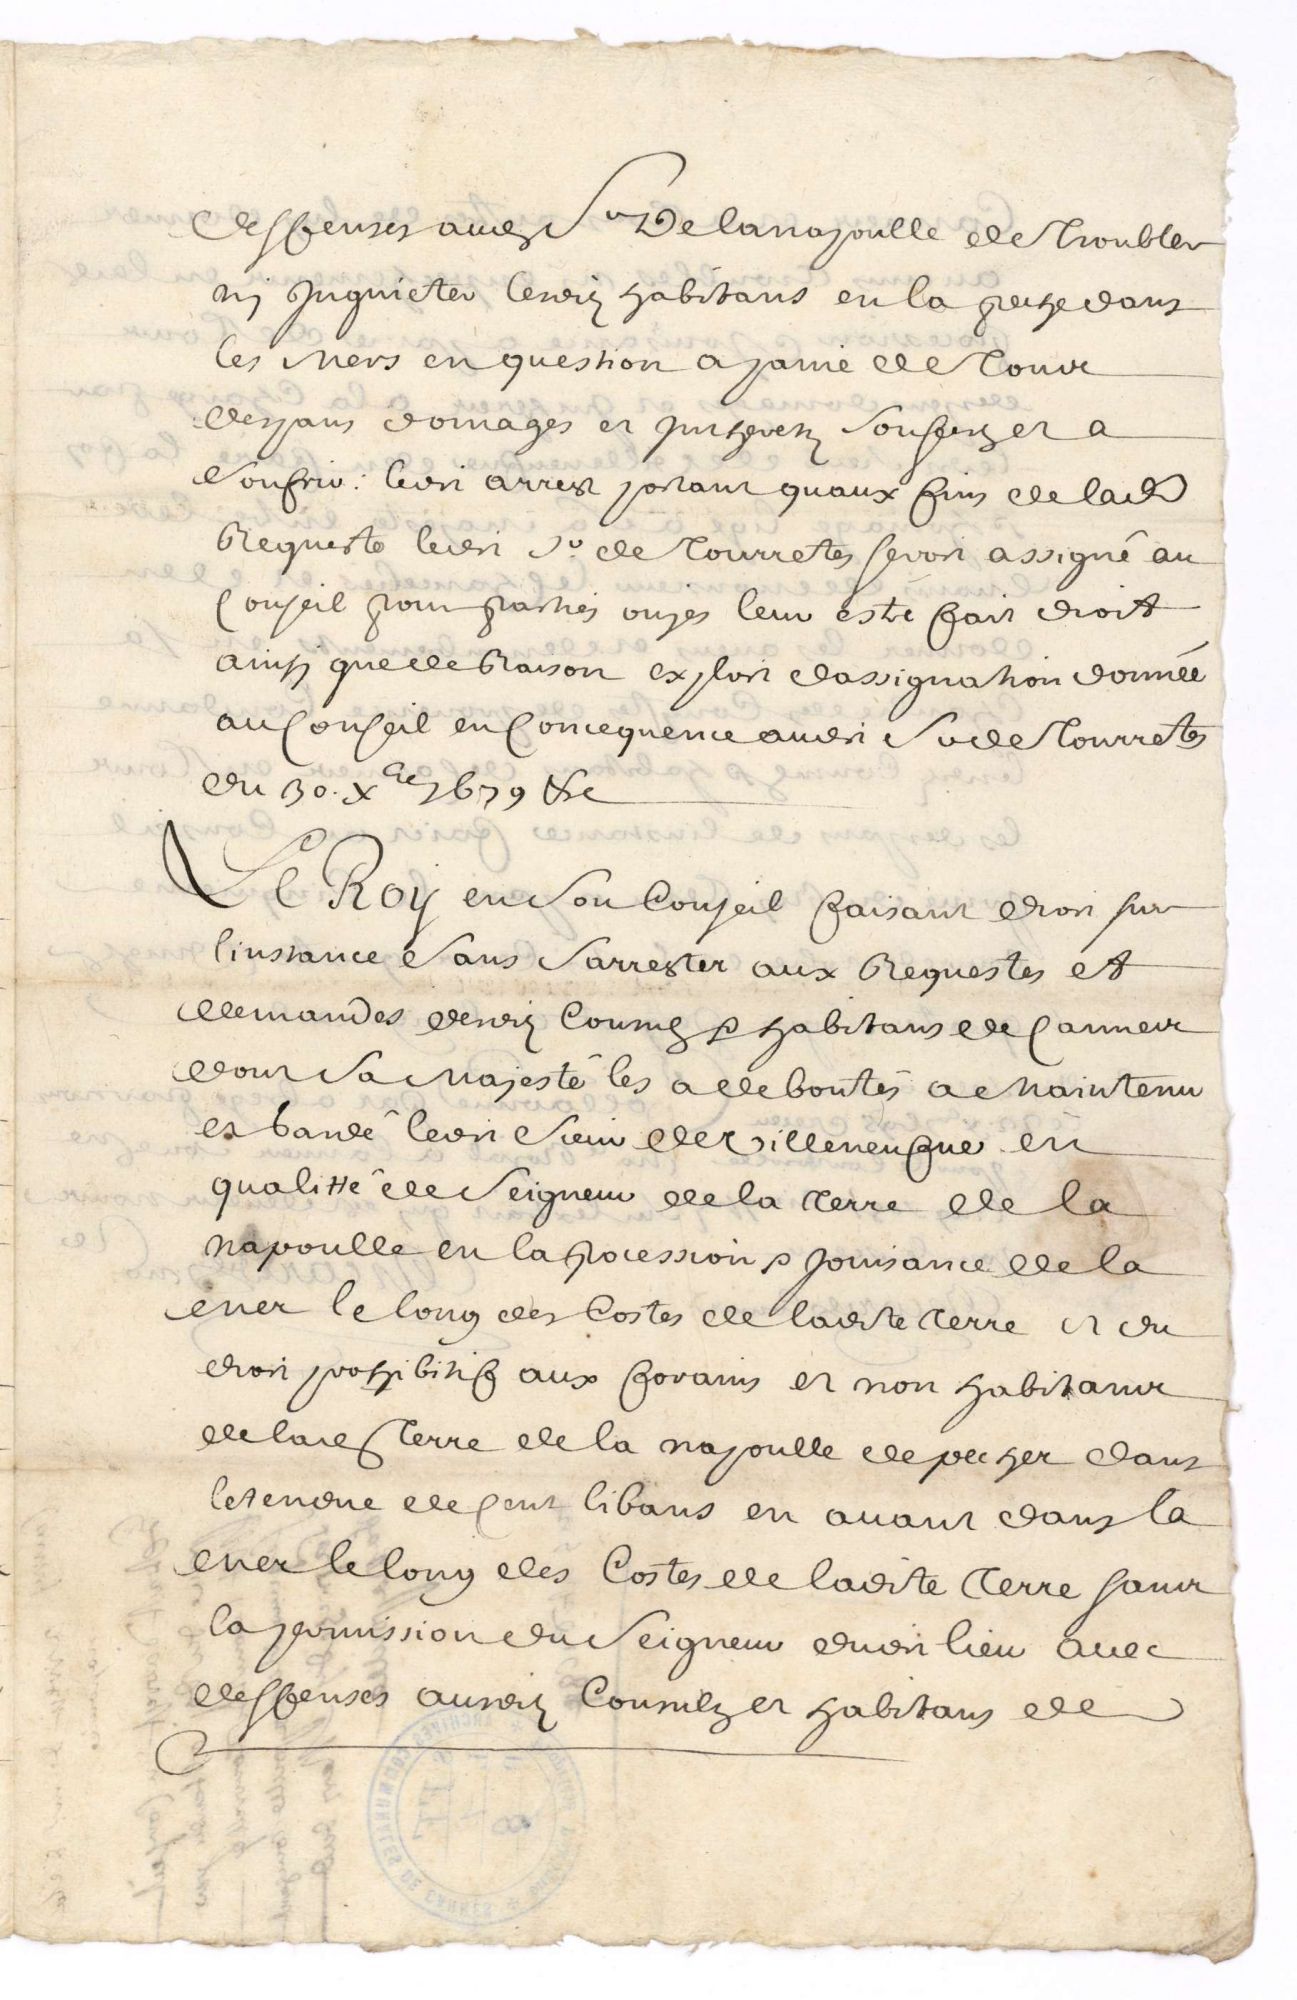 deffenses audt Sr De lanapoulle de troubler
nj Inquieter lesdits habitans en la pesche dans
les mers en question a paine de tous
despans domages et Interests soufertz et a
soufrir: ledit arrest portant quaux fins de lad
Requeste ledit Sr de tourretes seroit assigné au
Conseil pour parties ouyes leur estre fait droit
ainsy que de Raison exploit dassignation donnée
au Conseil en Consequence audit Sr de tourretes
du 30 xbre 1679 &c
Le Roy en son Conseil faisant droit sur
linstance sans sarrester aux Requestes et
demandes desdits Consulz & habitans de Cannes
dont sa Majesté les a deboutés a Maintenu
et gardé ledit sieur de villeneufue en
qualitté de seigneur de la terre de la
napoulle en la pocession & jouisance de la
mer le long des Costes de ladite terre et du
droit prohibitif aux forains et non habitans
de lade terre de la napoulle de pecher dans
letendue de Cent libans en auant dans la
mer le long des Costes de ladite terre sans
la permission du seigneur dudit lieu auec
deffenses ausdits Consulz et habitans de